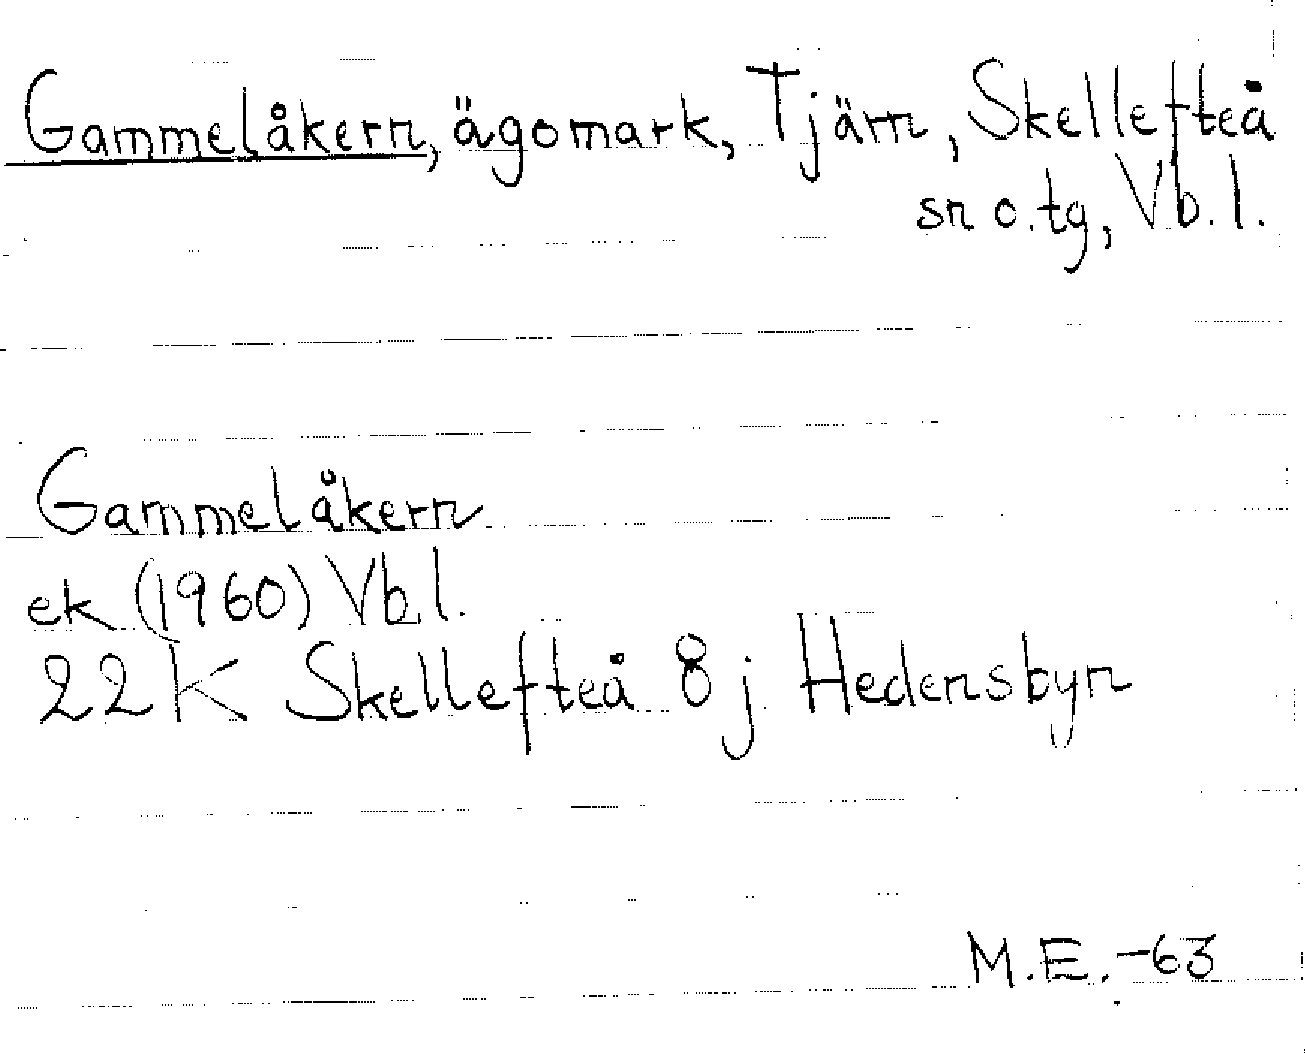 Gammelåkern, ägomark, Tjärn, Skellefteå
sn o. tg, Vb. l.
Gammelåkern
ek (1960) Vb. l.
22 K Skellefteå 8 j Hedensbyn
M.E. -63